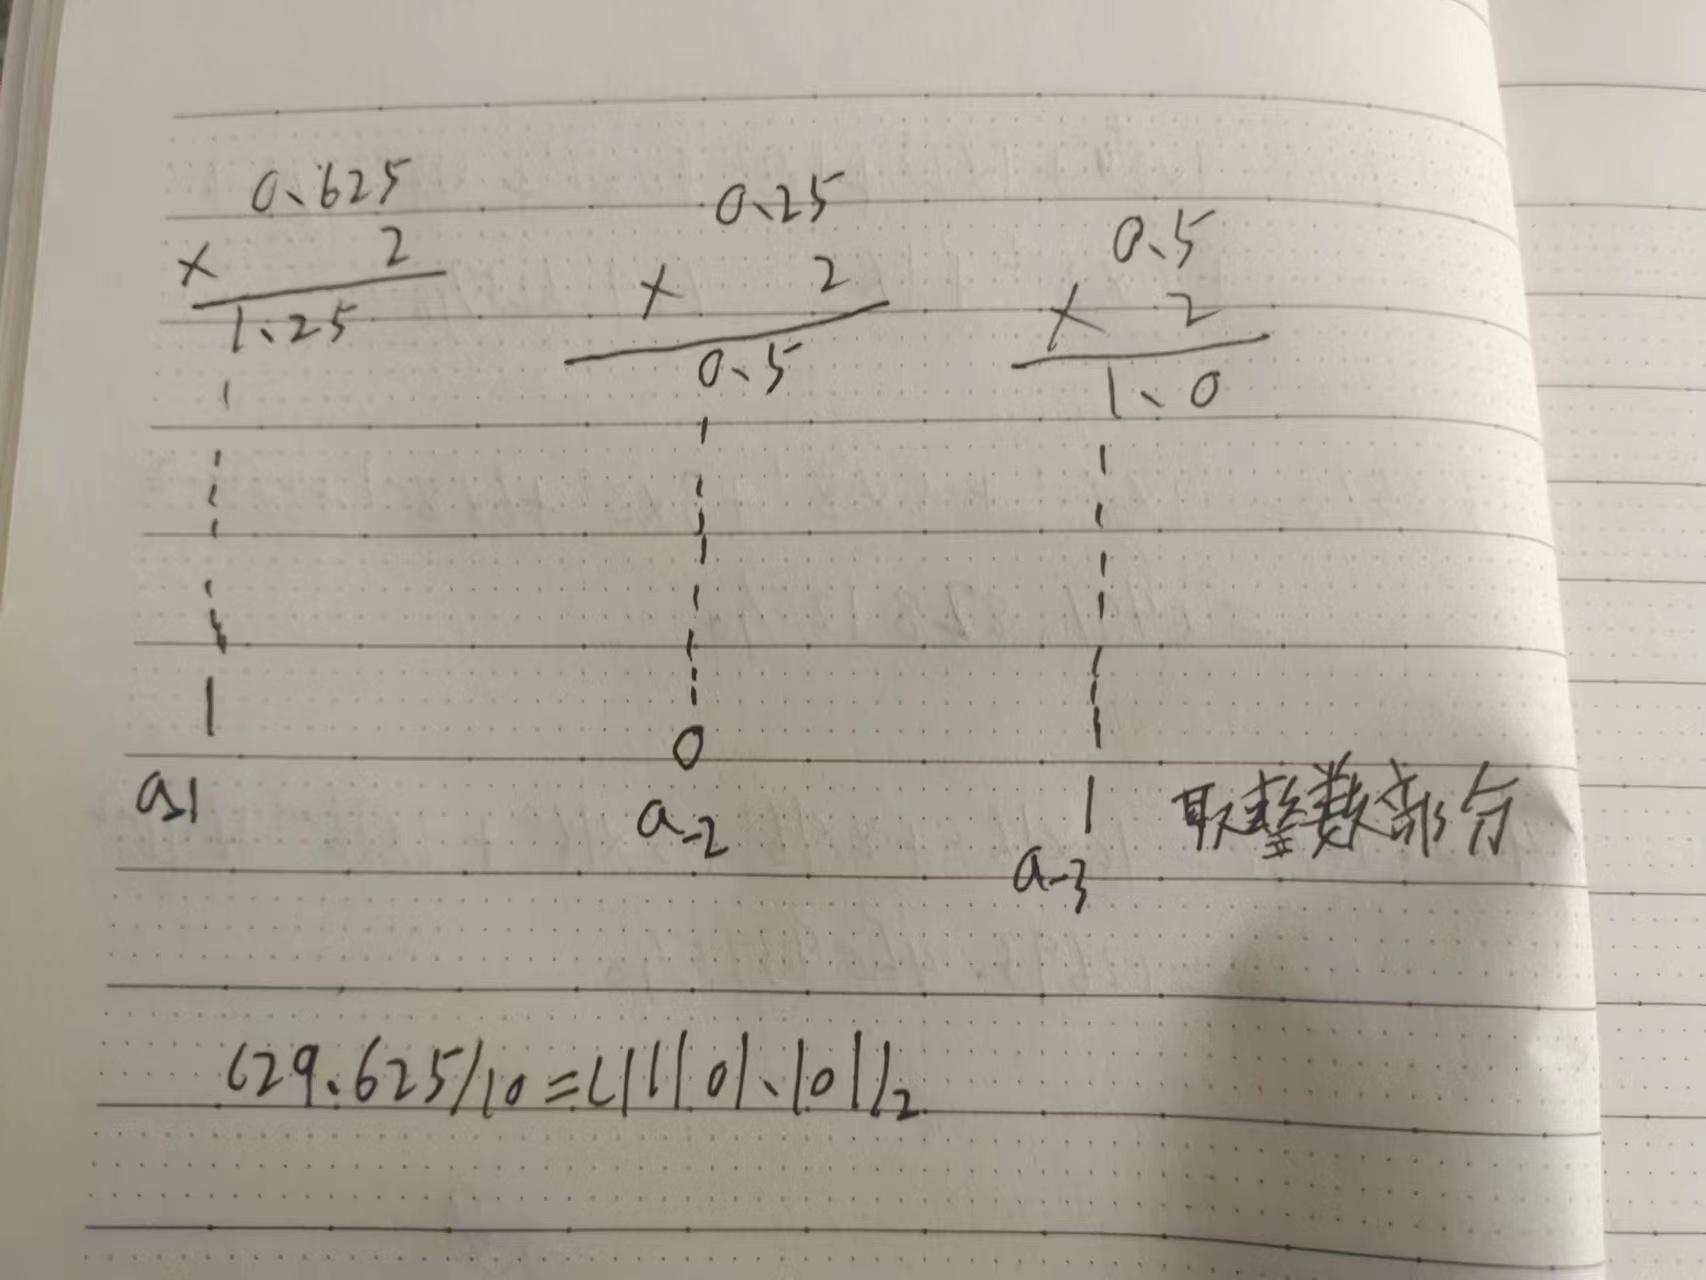 0.625
× 2
1.25
1
a-1
0.25
× 2
0.5
0
a-2
0.5
× 2
1.0
1
a-3
取整数部分
(29.625)10=(11101.101)2